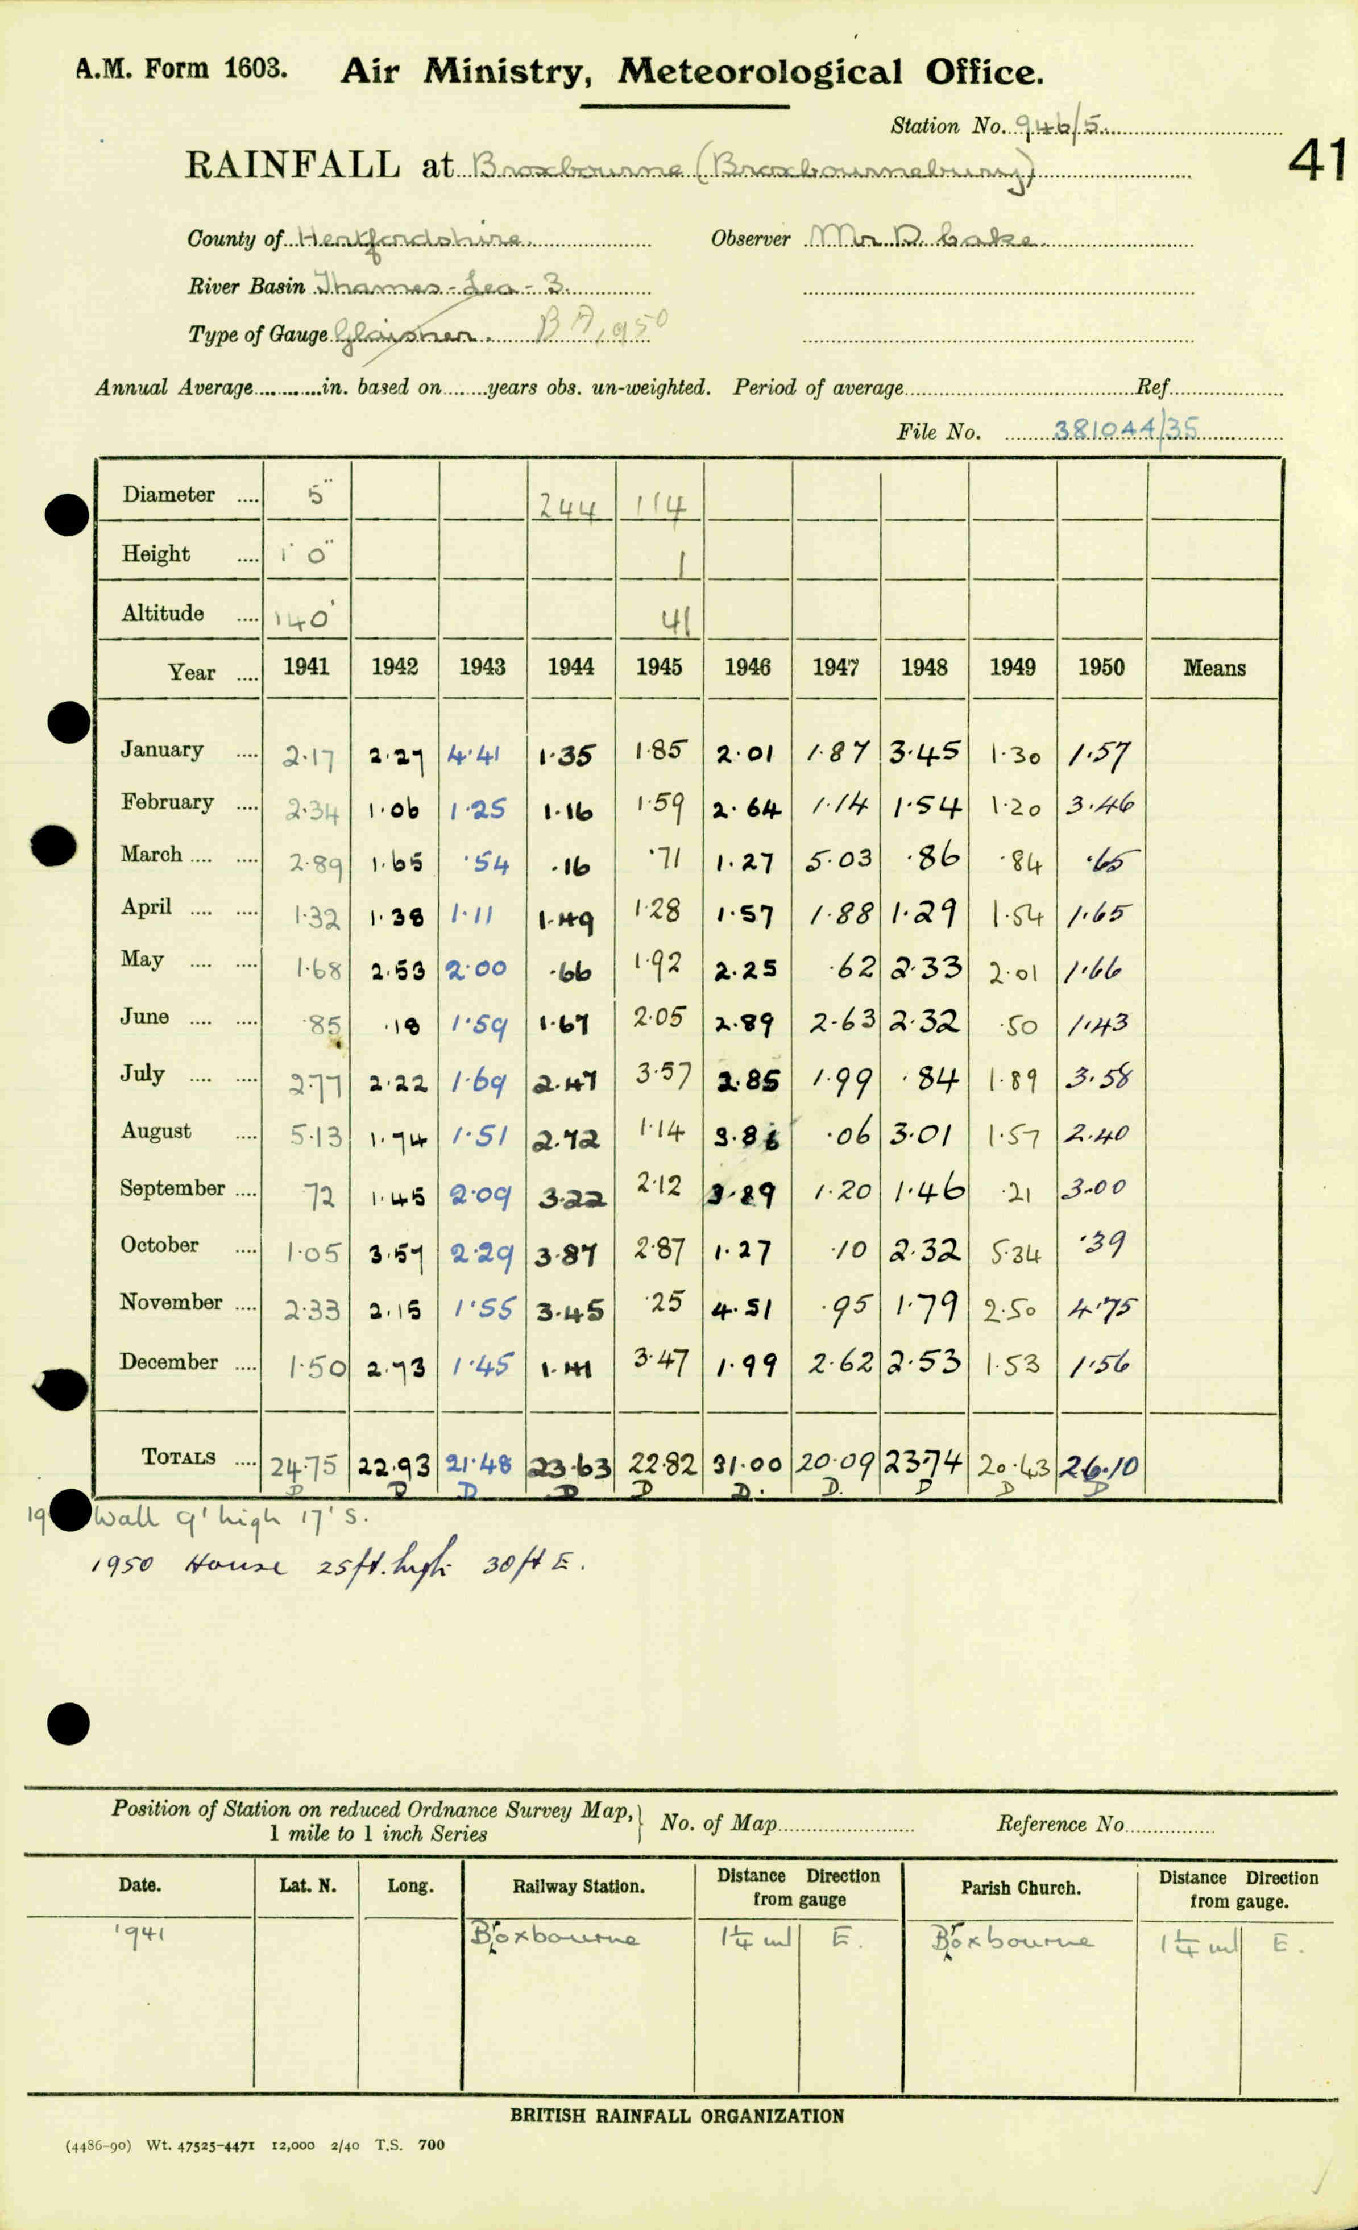 A.M. Form 1603. Air Ministry, Meteorological Office.
Station No. 946/5
41
RAINFALL at Broxbourne (Broxbournebury)
County of Hertfordshire. Observer Mr D. Cake.
River Basin Thames - Lea - 3.
Type of Gauge Glaisher. 1950
Annual Average............in. based on.......years obs. un-weighted. Period of average........ Ref........
File No. 381044/35
Diameter .... 5" 244 114
Height .... 1' 0" 1
Altitude .... 140' 41
Year .... 1941 1942 1943 1944 1945 1946 1947 1948 1949 1950 Means
January .... 2·17 2·27 4·41 1·35 1·85 2·01 1·87 3·45 1·30 1·57
February .... 2·34 1·06 1·25 1·16 1·59 2·64 1·14 1·54 1·20 3·46
March .... .... 2·89 1·65 ·54 ·16 ·71 1·27 5·03 ·86 ·84 ·65
April .... .... 1·32 1·38 1·11 1·49 1·28 1·57 1·88 1·29 1·54 1·65
May .... .... 1·68 2·53 2·00 ·66 1·92 2·25 ·62 2·33 2·01 1·66
June .... .... ·85 ·18 1·59 1·67 2·05 2·89 2·63 2·32 ·50 1·43
July .... .... 2·77 2·22 1·69 2·47 3·57 2·85 1·99 ·84 1·89 3·58
August .... 5·13 1·74 1·51 2·72 1·14 3·86 ·06 3·01 1·57 2·40
September .... ·72 1·45 2·09 3·22 2·12 3·89 1·20 1·46 ·21 3·00
October .... 1·05 3·57 2·29 3·87 2·87 1·27 ·10 2·32 5·34 ·39
November .... 2·33 2·15 1·55 3·45 ·25 4·51 ·95 1·79 2·50 4·75
December .... 1·50 2·73 1·45 1·41 3·47 1·99 2·62 2·53 1·53 1·56
TOTALS .... 24·75 22·93 21·48 23·63 22·82 31·00 20·09 23·74 20·43 26·10
D D D D D D. D. D D D
19 Wall 9' high 17' S.
1950 House 25ft. high 30ft E.
Position of Station on reduced Ordnance Survey Map, 1 mile to 1 inch Series } No. of Map........ Reference No........
Date. Lat. N. Long. Railway Station. Distance Direction from gauge Parish Church. Distance Direction from gauge.
1941 Broxbourne 1¼ ml E. Broxbourne 1¼ ml E.
BRITISH RAINFALL ORGANIZATION
(4486-90) Wt. 47525-4471 12,000 2/40 T.S. 700